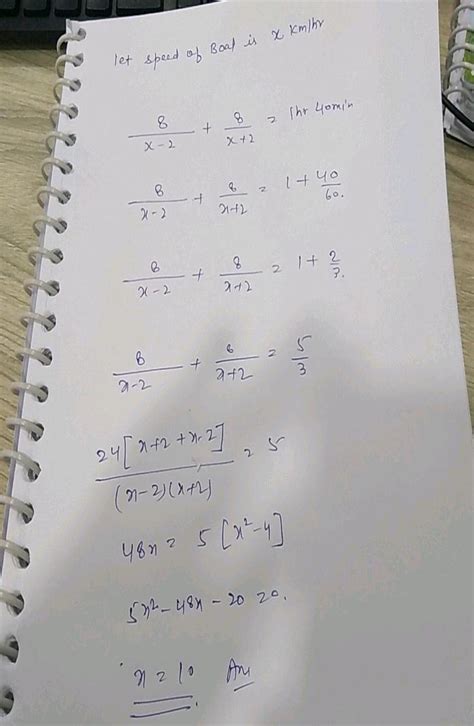 let speed of Boat is x km/hr
8/(x-2) + 8/(x+2) = 1hr 40min
8/(x-2) + 8/(x+2) = 1 + 40/60.
8/(x-2) + 8/(x+2) = 1 + 2/3.
8/(x-2) + 8/(x+2) = 5/3
24[x+2+x-2]/((x-2)(x+2)) = 5
48x = 5[x²-4]
5x²-48x-20=0.
x=10 Ans